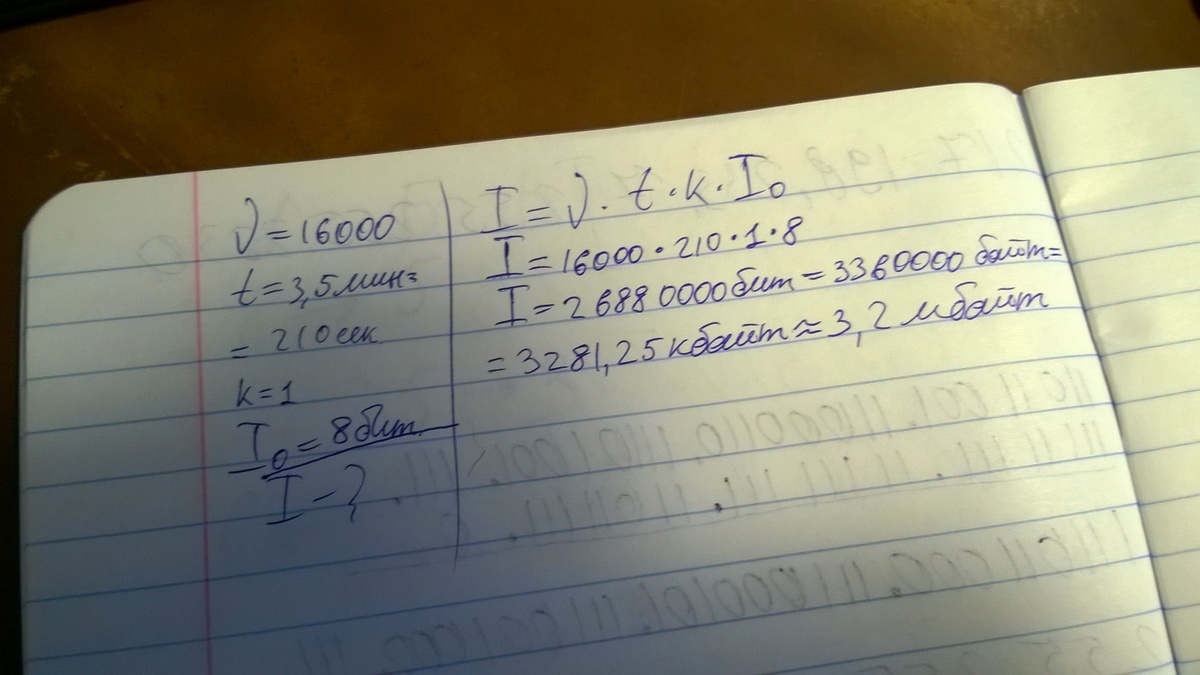 ν = 16000
t = 3,5 мин =
= 210 сек
k = 1
I₀ = 8 бит
I - ?
I = ν · t · k · I₀
I = 16000 · 210 · 1 · 8
I = 26880000 бит = 3360000 байт =
= 3281,25 кбайт ≈ 3,2 мбайт